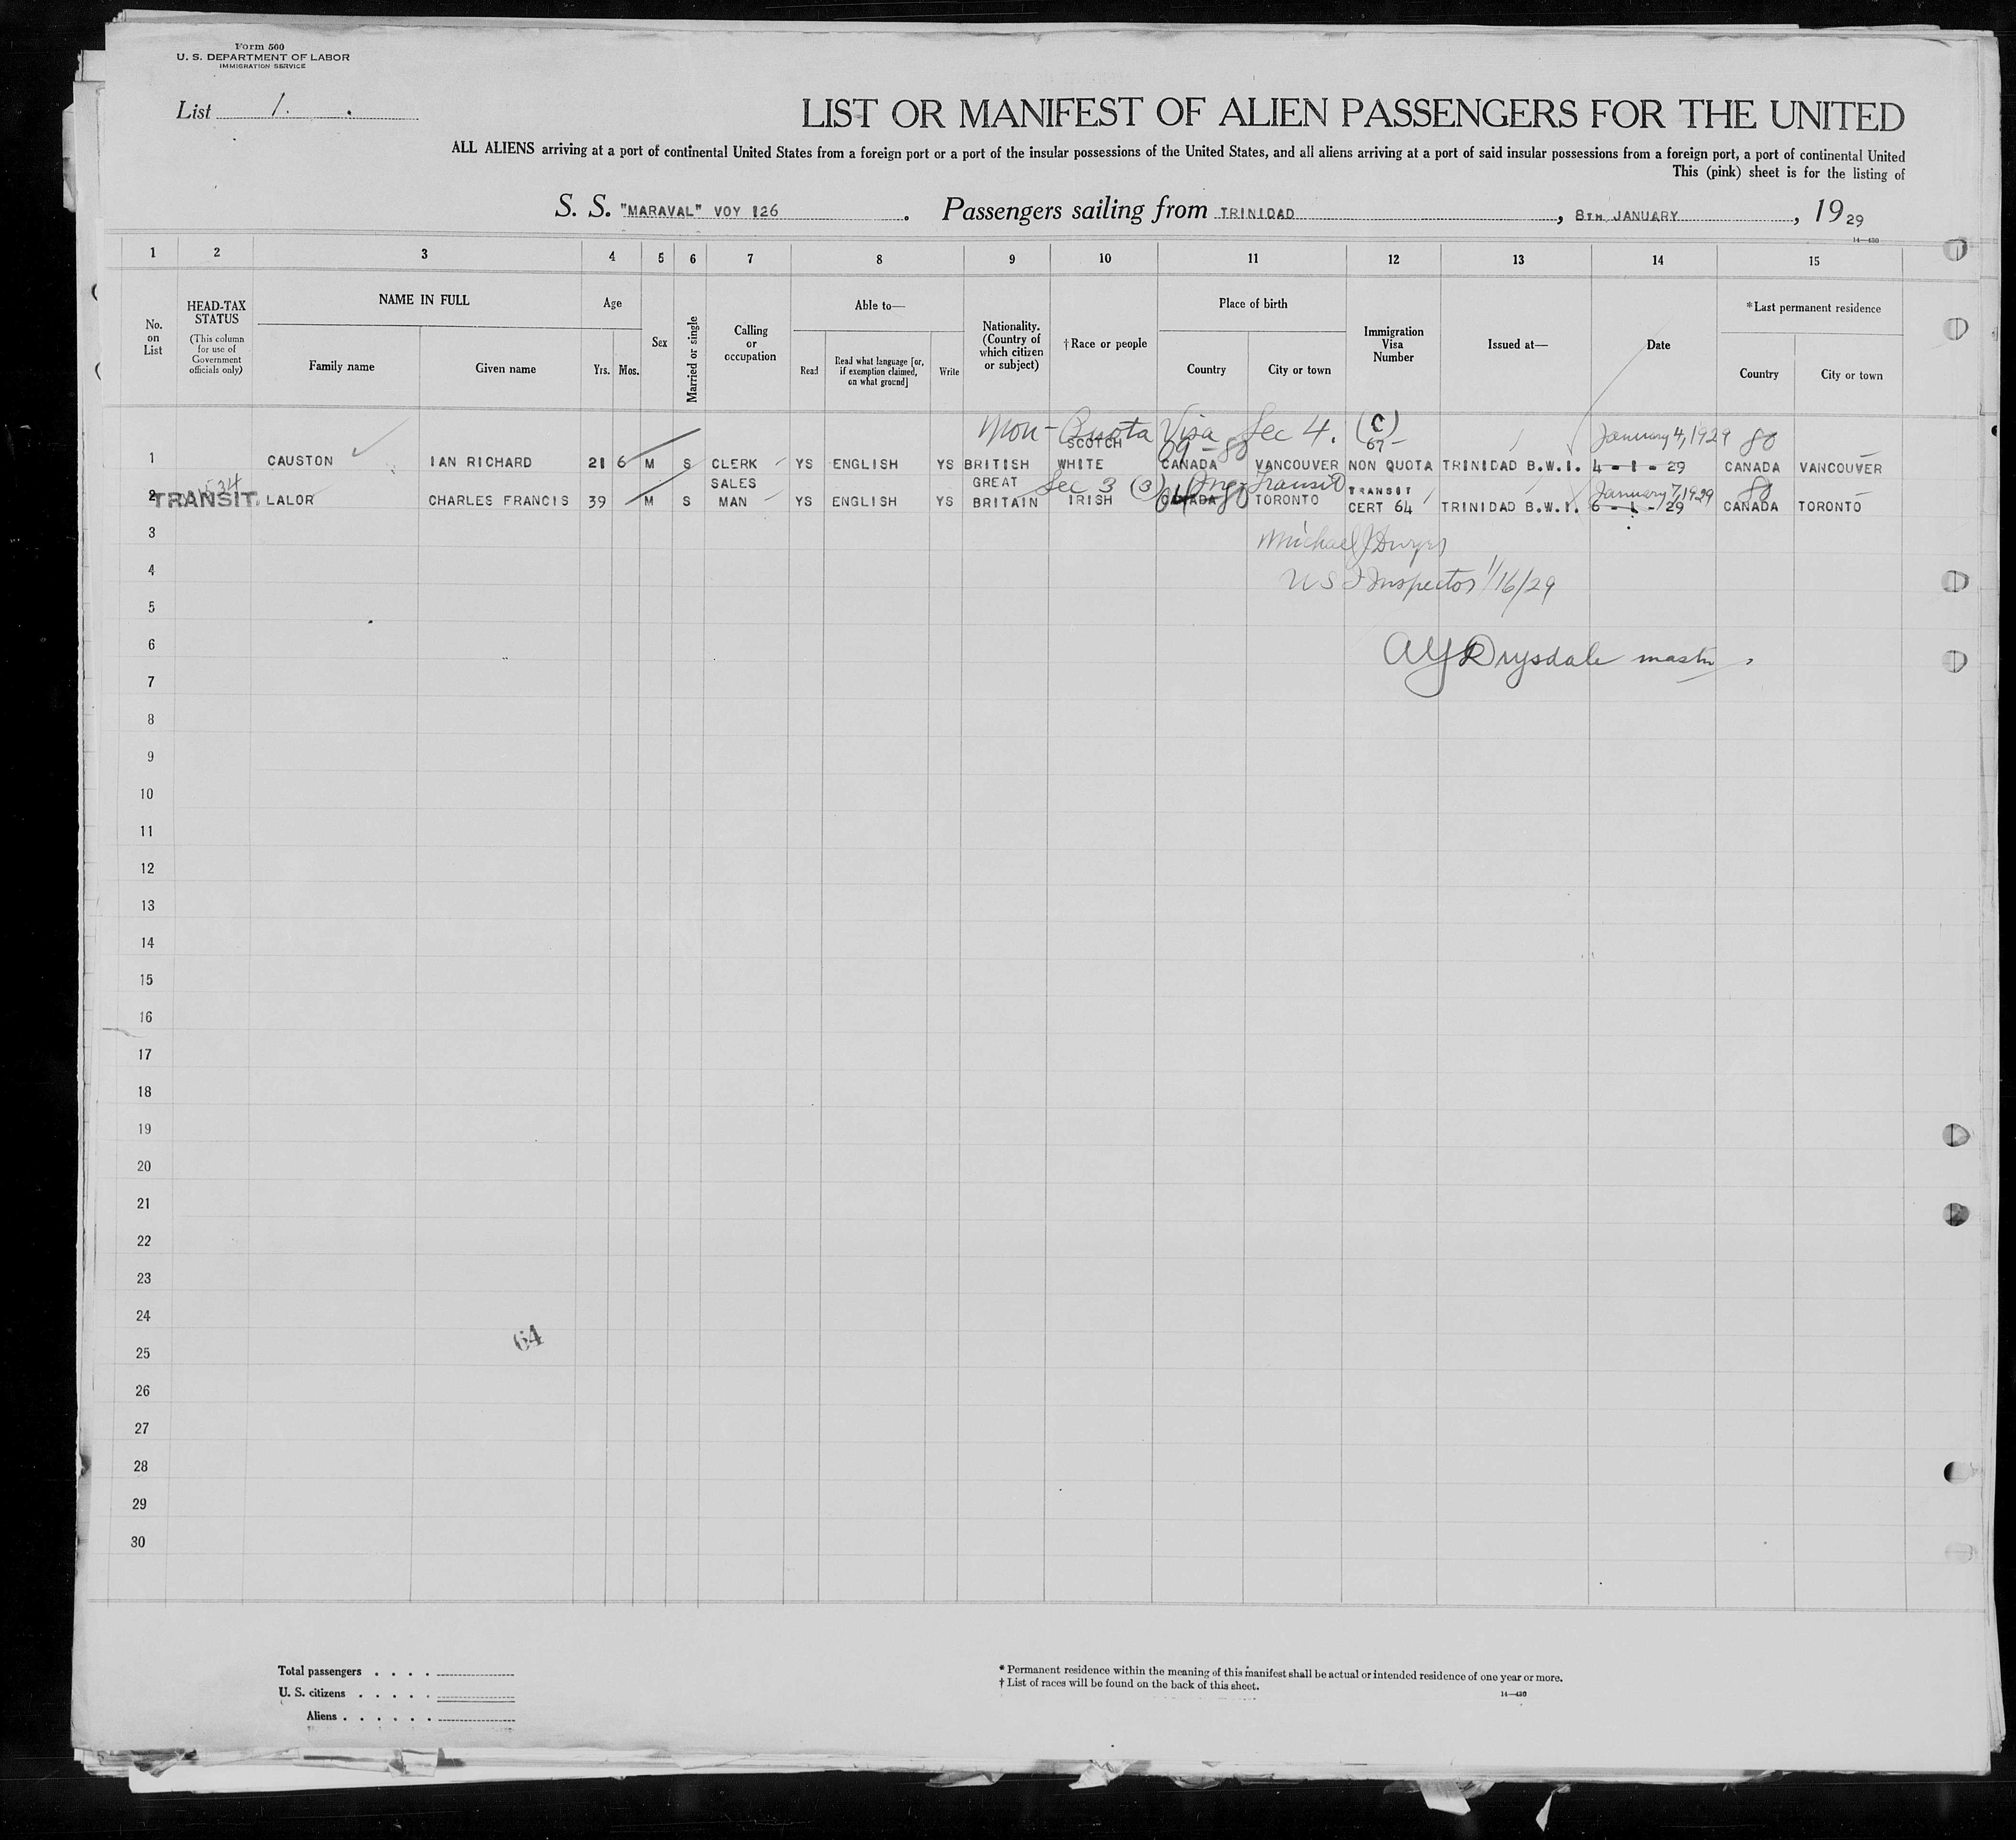 Form 500
U. S. DEPARTMENT OF LABOR
IMMIGRATION SERVICE
List 1.
LIST OR MANIFEST OF ALIEN PASSENGERS FOR THE UNITED
ALL ALIENS arriving at a port of continental United States from a foreign port or a port of the insular possessions of the United States, and all aliens arriving at a port of said insular possessions from a foreign port, a port of continental United
This (pink) sheet is for the listing of
S. S. "MARAVAL" VOY 126. Passengers sailing from TRINIDAD, 8TH JANUARY, 1929
14—430
1 2 3 4 5 6 7 8 9 10 11 12 13 14 15
No. on List
HEAD-TAX STATUS (This column for use of Government officials only)
NAME IN FULL
Family name Given name
Age
Yrs. Mos.
Sex
Married or single
Calling or occupation
Able to—
Read Read what language [or, if exemption claimed, on what ground] Write
Nationality. (Country of which citizen or subject)
†Race or people
Place of birth
Country City or town
Immigration Visa Number
Issued at—
Date
*Last permanent residence
Country City or town
Non-Quota Visa Sec 4. (C)
SCOTCH 09-80 67- January 4, 1929 80
1 CAUSTON IAN RICHARD 21 6 M S CLERK YS ENGLISH YS BRITISH WHITE CANADA VANCOUVER NON QUOTA TRINIDAD B.W.I. 4-1-29 CANADA VANCOUVER
SALES GREAT Sec 3 (3) Transit TRANSIT January 7, 1929 80
2 TRANSIT. LALOR CHARLES FRANCIS 39 M S MAN YS ENGLISH YS BRITAIN IRISH CANADA TORONTO CERT 64 TRINIDAD B.W.I. 6-1-29 CANADA TORONTO
3 Michael J Dwyer
4 U S I Inspector 1/16/29
5
6 Drysdale master
7
8
9
10
11
12
13
14
15
16
17
18
19
20
21
22
23
24
64
25
26
27
28
29
30
Total passengers . . . .
U. S. citizens . . . . .
Aliens . . . . . .
* Permanent residence within the meaning of this manifest shall be actual or intended residence of one year or more.
† List of races will be found on the back of this sheet.
14—430